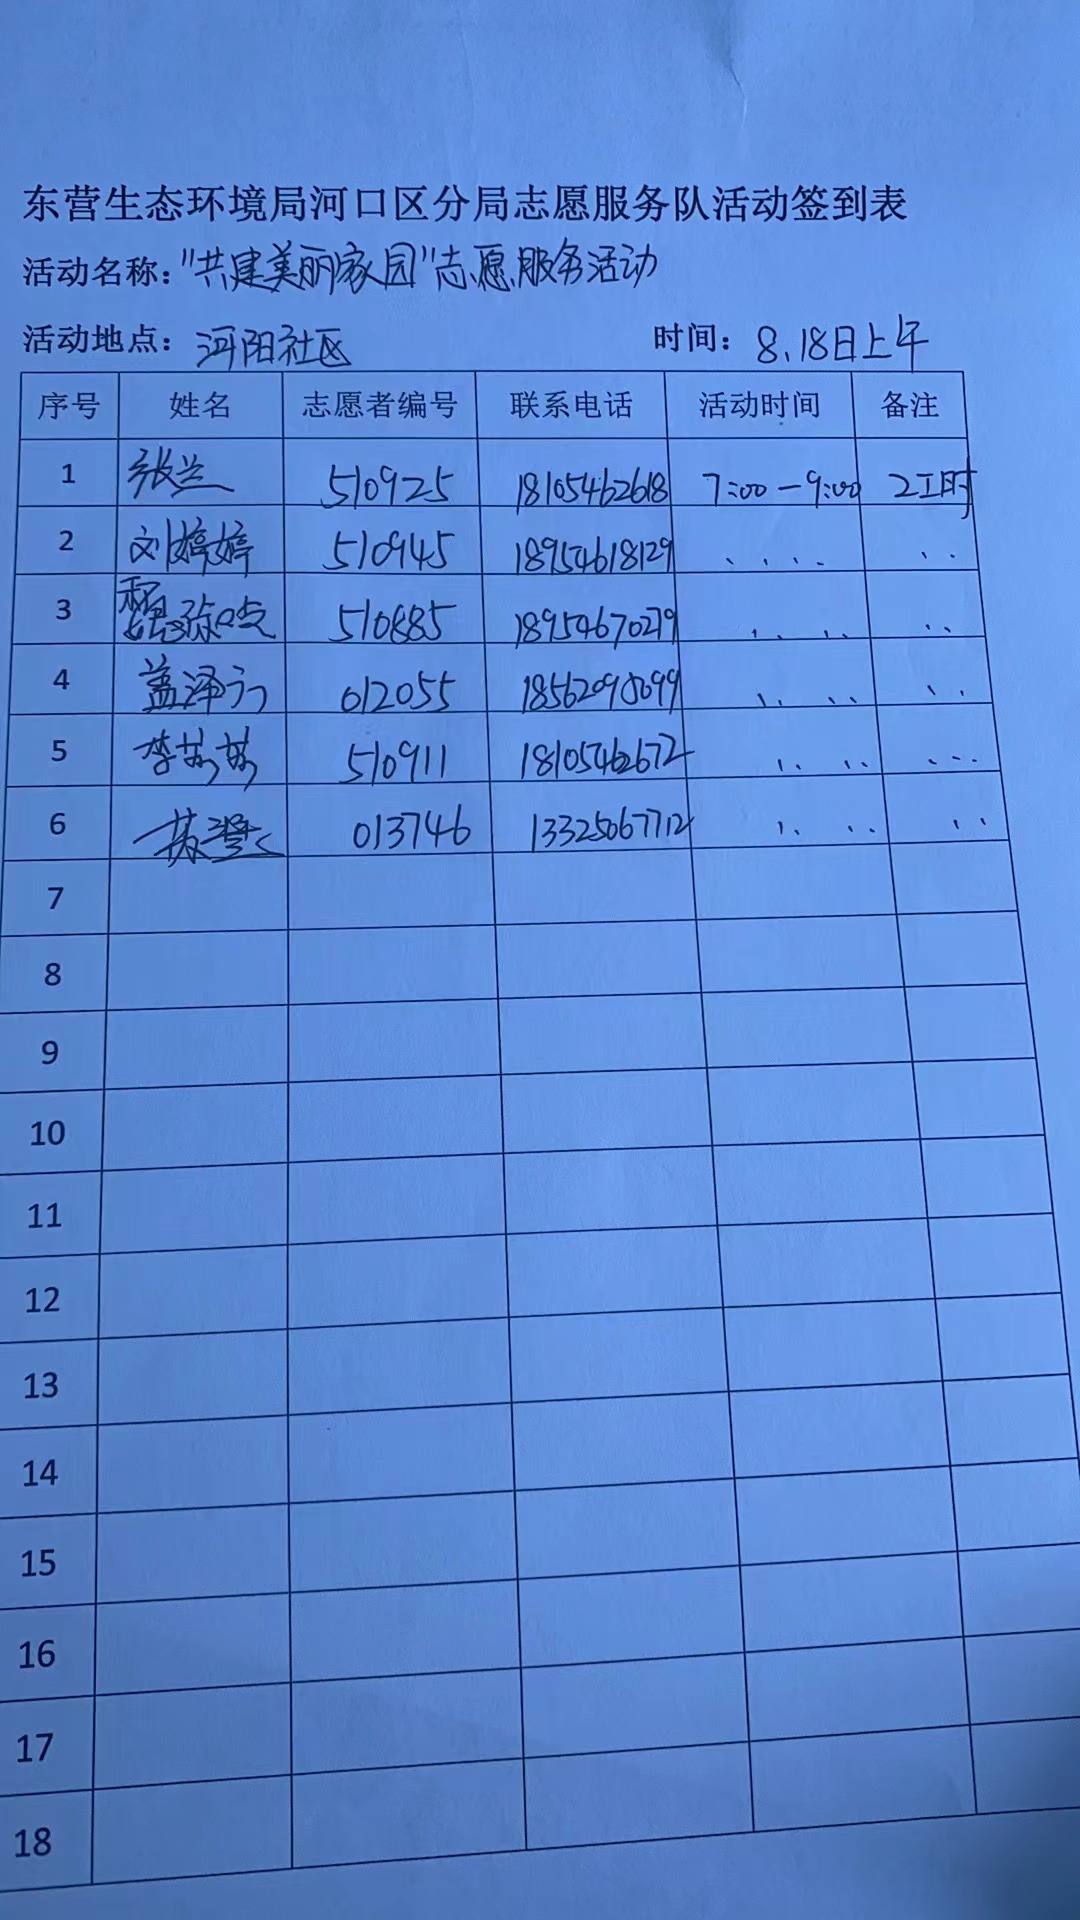 东营生态环境局河口区分局志愿服务队活动签到表
活动名称："共建美丽家园"志愿服务活动
活动地点：河阳社区 时间：8.18日上午
序号 姓名 志愿者编号 联系电话 活动时间 备注
1 张兰 510925 18105462618 7:00-9:00 2工时
2 刘婷婷 510945 18954618129
3 510885 18954670279
4 盖泽 012055
5 李芳芳 510911 18105462672
6 苏 013746 13325067712
7
8
9
10
11
12
13
14
15
16
17
18